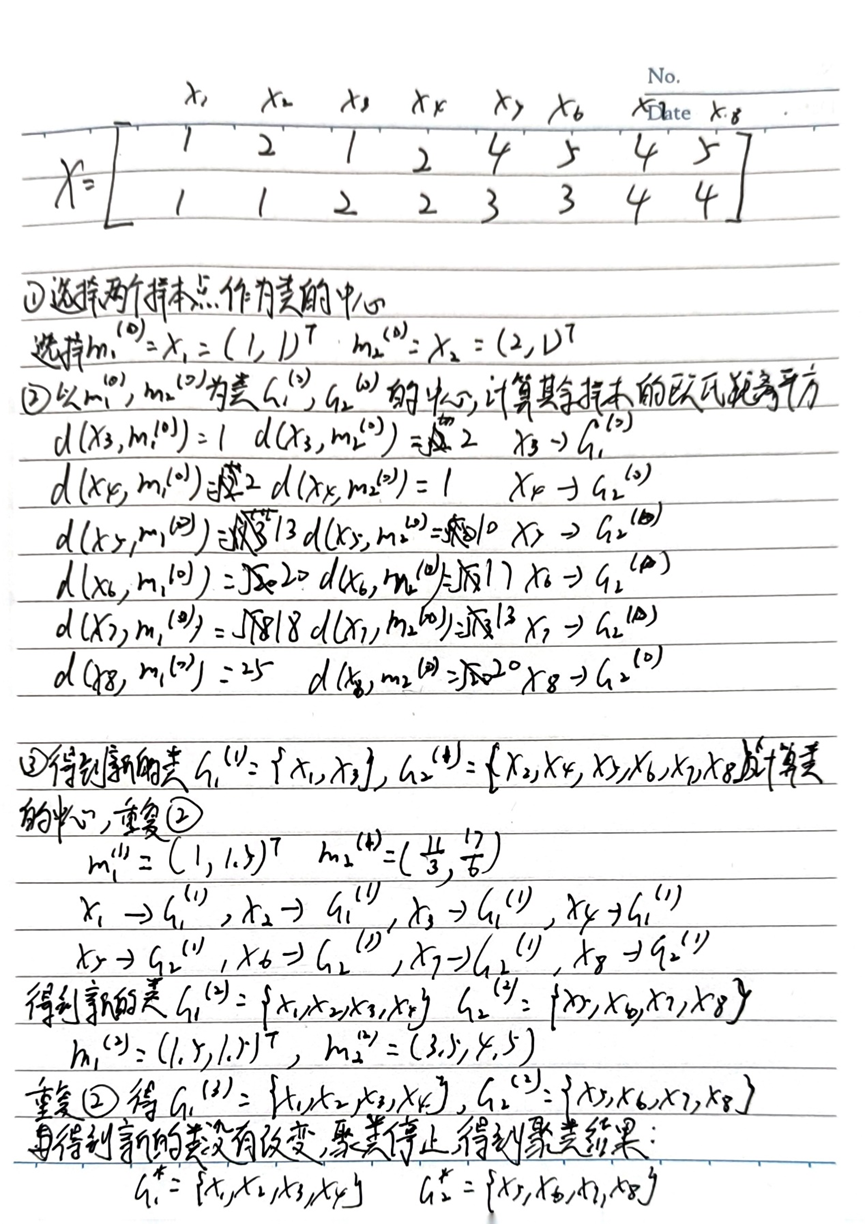 No.
Date
x₁ x₂ x₃ x₄ x₅ x₆ x₇ x₈
X = [ 1 2 1 2 4 5 4 5
1 1 2 2 3 3 4 4 ]
①选择两个样本点作为类的中心
选择m₁⁽⁰⁾ = x₁ = (1, 1)ᵀ m₂⁽⁰⁾ = x₂ = (2, 1)ᵀ
②以m₁⁽⁰⁾, m₂⁽⁰⁾为类G₁⁽⁰⁾, G₂⁽⁰⁾的中心,计算其余样本的欧氏距离平方
d(x₃, m₁⁽⁰⁾) = 1 d(x₃, m₂⁽⁰⁾) = 2 x₃ → G₁⁽⁰⁾
d(x₄, m₁⁽⁰⁾) = 2 d(x₄, m₂⁽⁰⁾) = 1 x₄ → G₂⁽⁰⁾
d(x₅, m₁⁽⁰⁾) = 13 d(x₅, m₂⁽⁰⁾ = 10 x₅ → G₂⁽⁰⁾
d(x₆, m₁⁽⁰⁾) = 20 d(x₆, m₂⁽⁰⁾) = 17 x₆ → G₂⁽⁰⁾
d(x₇, m₁⁽⁰⁾) = 18 d(x₇, m₂⁽⁰⁾) = 13 x₇ → G₂⁽⁰⁾
d(x₈, m₁⁽⁰⁾) = 25 d(x₈, m₂⁽⁰⁾ = 20 x₈ → G₂⁽⁰⁾
③得到新的类G₁⁽¹⁾ = {x₁, x₃}, G₂⁽¹⁾ = {x₂, x₄, x₅, x₆, x₇, x₈ 计算类
的中心,重复②
m₁⁽¹⁾ = (1, 1.5)ᵀ m₂⁽¹⁾ = (11/3, 17/6)
x₁ → G₁⁽¹⁾, x₂ → G₁⁽¹⁾, x₃ → G₁⁽¹⁾, x₄ → G₁⁽¹⁾
x₅ → G₂⁽¹⁾, x₆ → G₂⁽¹⁾, x₇ → G₂⁽¹⁾, x₈ → G₂⁽¹⁾
得到新的类G₁⁽²⁾ = {x₁, x₂, x₃, x₄} G₂⁽²⁾ = {x₅, x₆, x₇, x₈}
m₁⁽²⁾ = (1.5, 1.5)ᵀ, m₂⁽²⁾ = (3.5, 4.5)
重复②得G₁⁽³⁾ = {x₁, x₂, x₃, x₄}, G₂⁽²⁾ = {x₅, x₆, x₇, x₈}
得到新的类没有改变,聚类停止,得到聚类结果:
G₁* = {x₁, x₂, x₃, x₄} G₂* = {x₅, x₆, x₇, x₈}